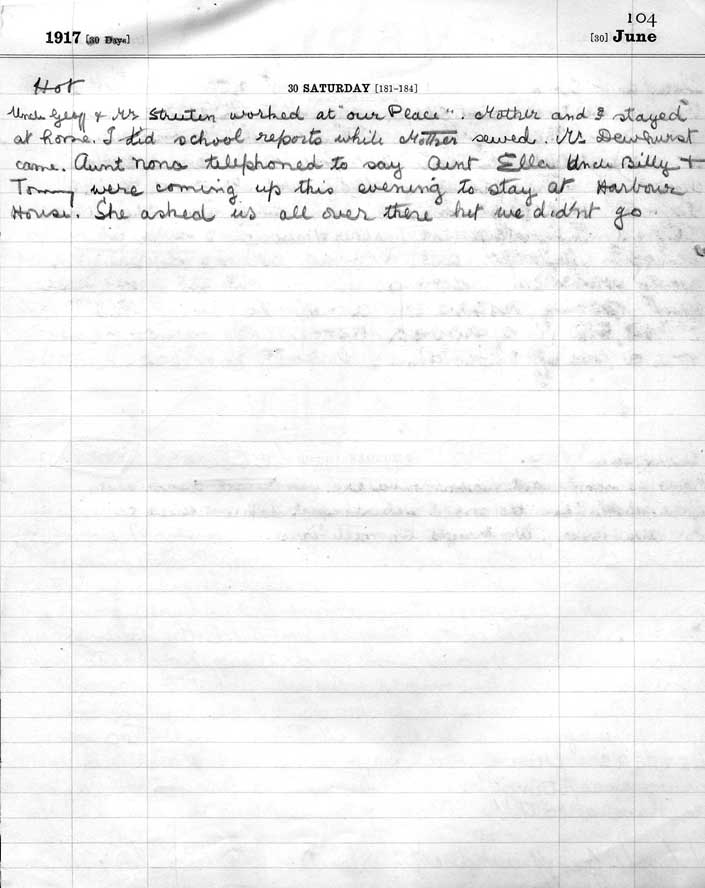 104
1917 [30 Days] [30] June
Hot
30 SATURDAY [181-184]
Uncle Geoff & Mr Streeten worked at "our Place". Mother and I stayed
at home. I did school reports while Mother sewed. Mr Dewhurst
came. Aunt Nona telephoned to say Aunt Ella Uncle Billy +
Tommy were coming up this evening to stay at Harbour
House. She asked us all over there but we didn't go.